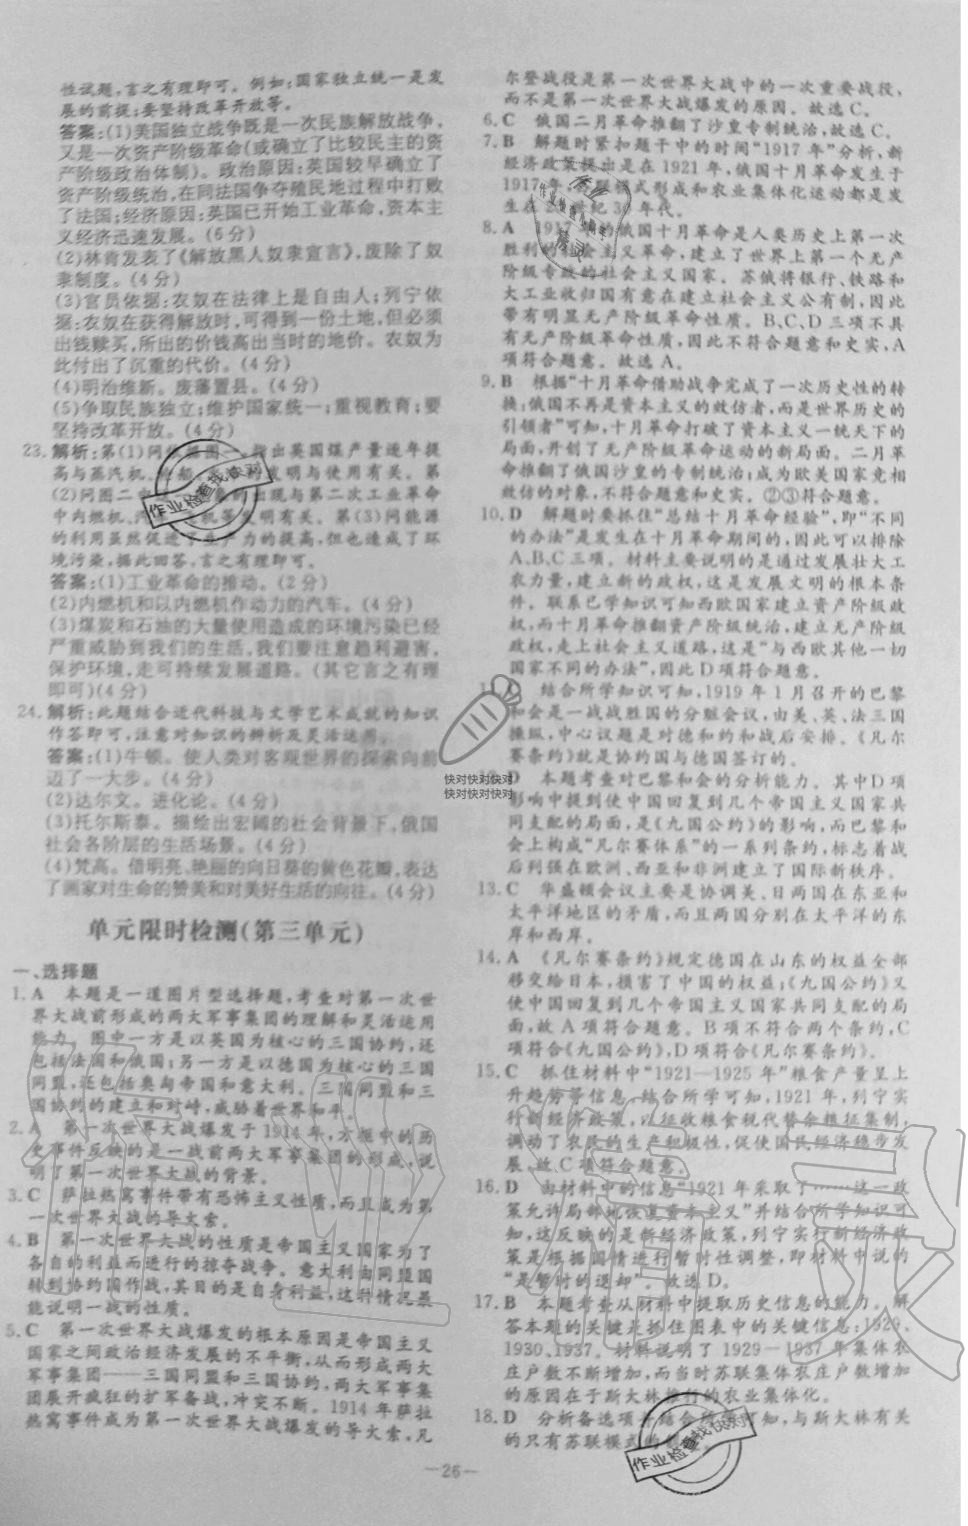 性试题,言之有理即可。例如:国家独立统一是发
展的前提;要坚持改革开放等。
答案:(1)美国独立战争既是一次民族解放战争,
又是一次资产阶级革命(或确立了比较民主的资
产阶级政治体制)。政治原因:英国较早确立了
资产阶级统治,在同法国争夺殖民地过程中打败
了法国;经济原因:英国已开始工业革命,资本主
义经济迅速发展。(6分)
(2)林肯发表了《解放黑人奴隶宣言》,废除了奴
隶制度。(4分)
(3)官员依据:农奴在法律上是自由人;列宁依
据:农奴在获得解放时,可得到一份土地,但必须
出钱赎买,所出的价钱高出当时的地价。农奴为
此付出了沉重的代价。(4分)
(4)明治维新。废藩置县。(4分)
(5)争取民族独立;维护国家统一;重视教育;要
坚持改革开放。(4分)
23.解析:第(1)问 图一 出英国煤产量逐年提
高与蒸汽机 发明与使用有关。第
(2)问图二 的出现与第二次工业革命
中内燃机、汽 机等发明有关。第(3)问能源
的利用虽然促进了生产力的提高,但也造成了环
境污染,据此回答,言之有理即可。
答案:(1)工业革命的推动。(2分)
(2)内燃机和以内燃机作动力的汽车。(4分)
(3)煤炭和石油的大量使用造成的环境污染已经
严重威胁到我们的生活,我们要注意趋利避害,
保护环境,走可持续发展道路。(其它言之有理
即可)(4分)
24.解析:此题结合近代科技与文学艺术成就的知识
作答即可,注意对知识的辨析及灵活运用。
答案:(1)牛顿。使人类对客观世界的探索向前
迈了一大步。(4分)
(2)达尔文。进化论。(4分)
(3)托尔斯泰。描绘出宏阔的社会背景下,俄国
社会各阶层的生活场景。(4分)
(4)梵高。借明亮、艳丽的向日葵的黄色花瓣,表达
了画家对生命的赞美和对美好生活的向往。(4分)
单元限时检测(第三单元)
一、选择题
1.A 本题是一道图片型选择题,考查对第一次世
界大战前形成的两大军事集团的理解和灵活运用
能力。图中一方是以英国为核心的三国协约,还
包括法国和俄国;另一方是以德国为核心的三国
同盟,还包括奥匈帝国和意大利。三国同盟和三
国协约的建立和对峙,威胁着世界和平。
2.A 第一次世界大战爆发于1914年,方框中的历
史事件反映的是一战前两大军事集团的形成,说
明了第一次世界大战的背景。
3.C 萨拉热窝事件带有恐怖主义性质,而且成为第
一次世界大战的导火索。
4.B 第一次世界大战的性质是帝国主义国家为了
各自的利益而进行的掠夺战争。意大利由同盟国
转到协约国作战,其目的是自身利益,这种情况最
能说明一战的性质。
5.C 第一次世界大战爆发的根本原因是帝国主义
国家之间政治经济发展的不平衡,从而形成两大
军事集团——三国同盟和三国协约,两大军事集
团展开疯狂的扩军备战,冲突不断。1914年萨拉
热窝事件成为第一次世界大战爆发的导火索,凡
尔登战役是第一次世界大战中的一次重要战役,
而不是第一次世界大战爆发的原因。故选C。
6.C 俄国二月革命推翻了沙皇专制统治,故选C。
7.B 解题时紧扣题干中的时间“1917年”分析,新
经济政策提出是在1921年,俄国十月革命发生于
1917年,苏联模式形成和农业集体化运动都是发
生在20世纪30年代。
8.A 1917年的俄国十月革命是人类历史上第一次
胜利的社会主义革命,建立了世界上第一个无产
阶级专政的社会主义国家。苏俄将银行、铁路和
大工业收归国有意在建立社会主义公有制,因此
带有明显无产阶级革命性质。B、C、D三项不具
有无产阶级革命性质,因此不符合题意和史实,A
项符合题意。故选A。
9.B 根据“十月革命借助战争完成了一次历史性的转
换;俄国不再是资本主义的效仿者,而是世界历史的
引领者”可知,十月革命打破了资本主义一统天下的
局面,开创了无产阶级革命运动的新局面。二月革
命推翻了俄国沙皇的专制统治;成为欧美国家竞相
效仿的对象,不符合题意和史实。②③符合题意。
10.D 解题时要抓住“总结十月革命经验”,即“不同
的办法”是发生在十月革命期间的,因此可以排除
A、B、C三项。材料主要说明的是通过发展壮大工
农力量,建立新的政权,这是发展文明的根本条
件。联系已学知识可知西欧国家建立资产阶级政
权,而十月革命推翻资产阶级统治,建立无产阶级
政权,走上社会主义道路,这是“与西欧其他一切
国家不同的办法”,因此D项符合题意。
11.C 结合所学知识可知,1919年1月召开的巴黎
和会是一战战胜国的分赃会议,由美、英、法三国
操纵,中心议题是对德和约和战后安排。《凡尔
赛条约》就是协约国与德国签订的。
12.D 本题考查对巴黎和会的分析能力。其中D项
影响中提到使中国回复到几个帝国主义国家共
同支配的局面,是《九国公约》的影响,而巴黎和
会上构成“凡尔赛体系”的一系列条约,标志着战
后列强在欧洲、西亚和非洲建立了国际新秩序。
13.C 华盛顿会议主要是协调美、日两国在东亚和
太平洋地区的矛盾,而且两国分别在太平洋的东
岸和西岸。
14.A 《凡尔赛条约》规定德国在山东的权益全部
移交给日本,损害了中国的权益;《九国公约》又
使中国回复到几个帝国主义国家共同支配的局
面,故A项符合题意。B项不符合两个条约,C
项符合《九国公约》,D项符合《凡尔赛条约》。
15.C 抓住材料中“1921—1925年”粮食产量呈上
升趋势信息,结合所学可知,1921年,列宁实
行新经济政策,以征收粮食税代替余粮征集制,
调动了农民的生产积极性,促使国民经济稳步发
展,故C项符合题意。
16.D 由材料中的信息“1921年采取了……这一政
策允许局部地恢复资本主义”并结合所学知识可
知,这反映的是新经济政策,列宁实行新经济政
策是根据国情进行暂时性调整,即材料中说的
“是暂时的退却”。故选D。
17.B 本题考查从材料中提取历史信息的能力。解
答本题的关键是抓住图表中的关键信息:1929、
1930、1937。材料说明了1929—1937年集体农
庄户数不断增加,而当时苏联集体农庄户数增加
的原因在于斯大林推行的农业集体化。
18.D 分析备选项并结合所学可知,与斯大林有关
的只有苏联模式的
—26—
作业检查找快对
快对快对快对
快对快对快对
作业检查找快对